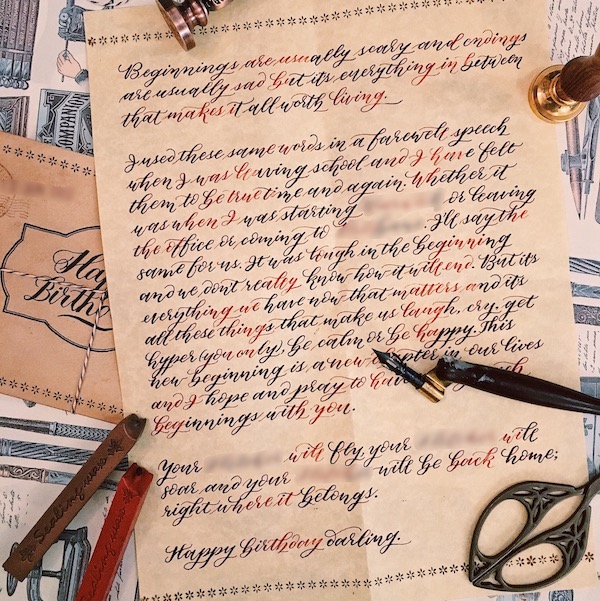 Beginnings are usually scary and endings
are usually sad but its everything in between
that makes it all worth living.
I used these same words in a farewell speech
when I was leaving school and I have felt
them to be true time and again. Whether it
was when I was starting or leaving
the office or coming to I'll say the
same for us. It was tough in the beginning
and we dont really know how it will end. But its
everything we have now that matters and its
all these things that make us laugh, cry, get
hyper (you only), be calm or be happy. This
new beginning is a new chapter in our lives
and I hope and pray to have such
beginnings with you.
Your will fly, your will
soar and your will be back home;
right where it belongs.
Happy Birthday darling.
Sealing wax
Sealing wax
COMPANION